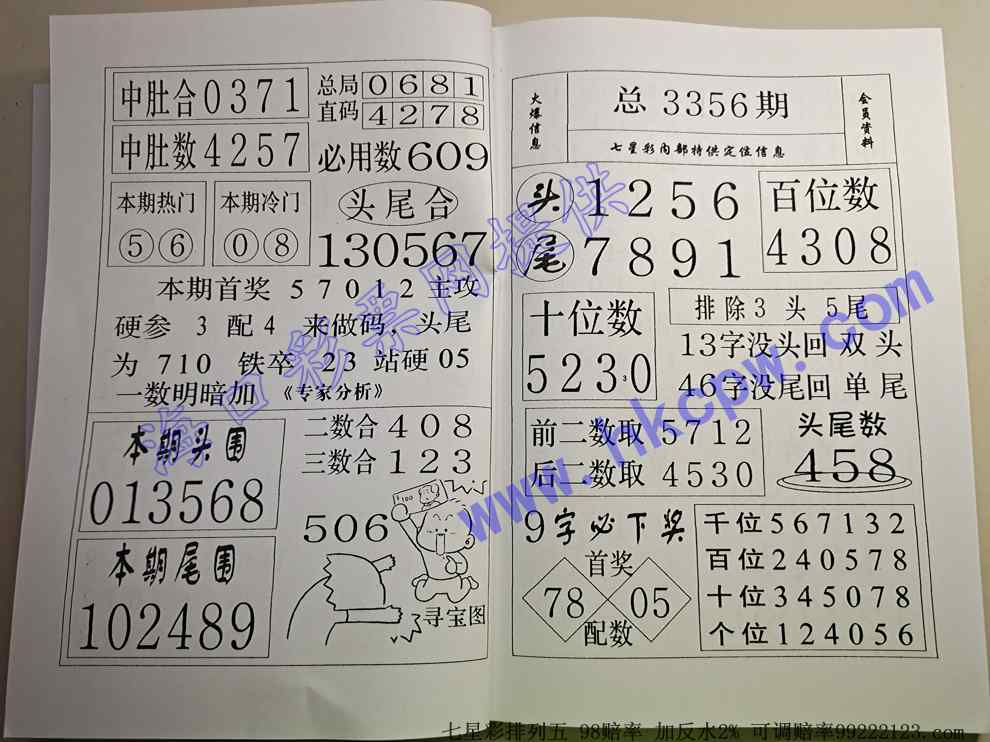 中肚合0371
中肚数4257
总局 0 6 8 1
直码 4 2 7 8
必用数609
本期热门
⑤⑥
本期冷门
⓪⑧
头尾合
130567
本期首奖 5 7 0 1 2 主攻
硬参 3 配 4 来做码、头尾
为 710 铁卒 23 站硬 05
一数明暗加 《专家分析》
本期头围
013568
本期尾围
102489
二数合 4 0 8
三数合 1 2 3
100
506
寻宝图
火爆信息
总 3356期
七星彩内部特供定位信息
会员资料
头 1 2 5 6
尾 7 8 9 1
百位数
4308
十位数
5 2 3 3 0
排除3 头 5尾
13字没头回 双 头
46字没尾回 单 尾
前二数取 5712
后二数取 4530
头尾数
458
9字必下奖
首奖
78 05
配数
千位 5 6 7 1 3 2
百位 2 4 0 5 7 8
十位 3 4 5 0 7 8
个位 1 2 4 0 5 6
海口彩票网提供
www.hkcpw.com
七星彩排列五 98赔率 加反水2% 可调赔率99222123.com